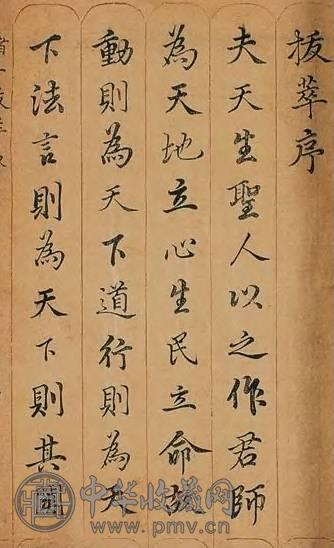 拔萃序
夫天生聖人以之作君師
為天地立心生民立命故
動則為天下道行則為天
下法言則為天下則其
中华收藏网
www.pmv.cn